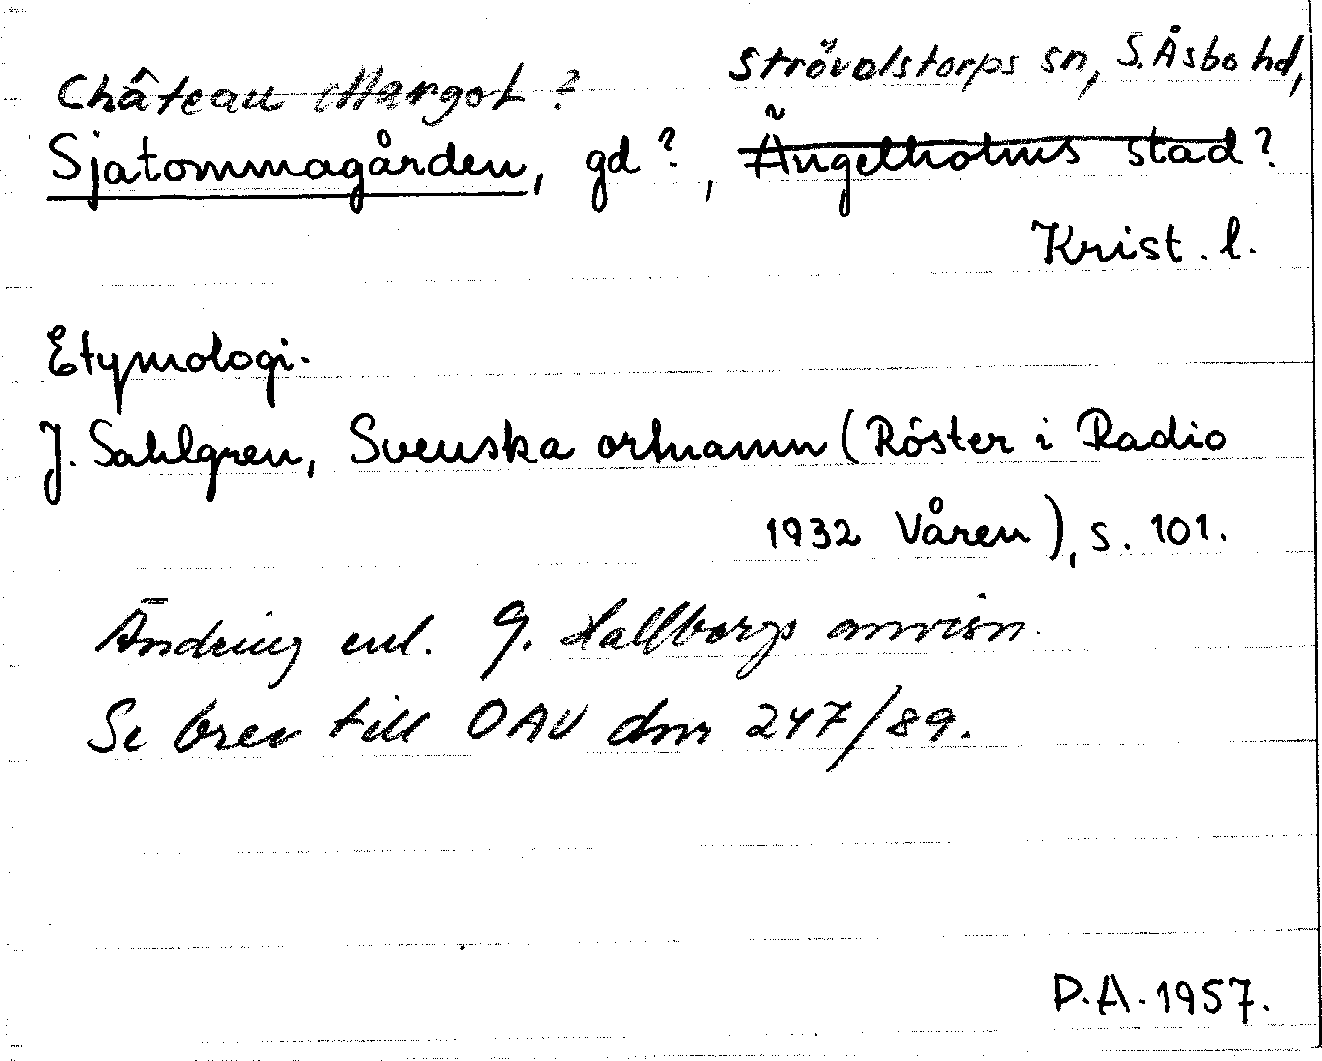 Strövelstorps sn, S. Åsbo hd,
Château Margot?
Sjatommagården, gd?, Ängelholms stad?
Krist. l.
Etymologi.
J. Sahlgren, Svenska ortnamn (Röster i Radio
1932 Våren), s. 101.
Ändring enl. G. Hallbergs anvisn.
Se brev till OAU dnr 247/89.
P.A. 1957.